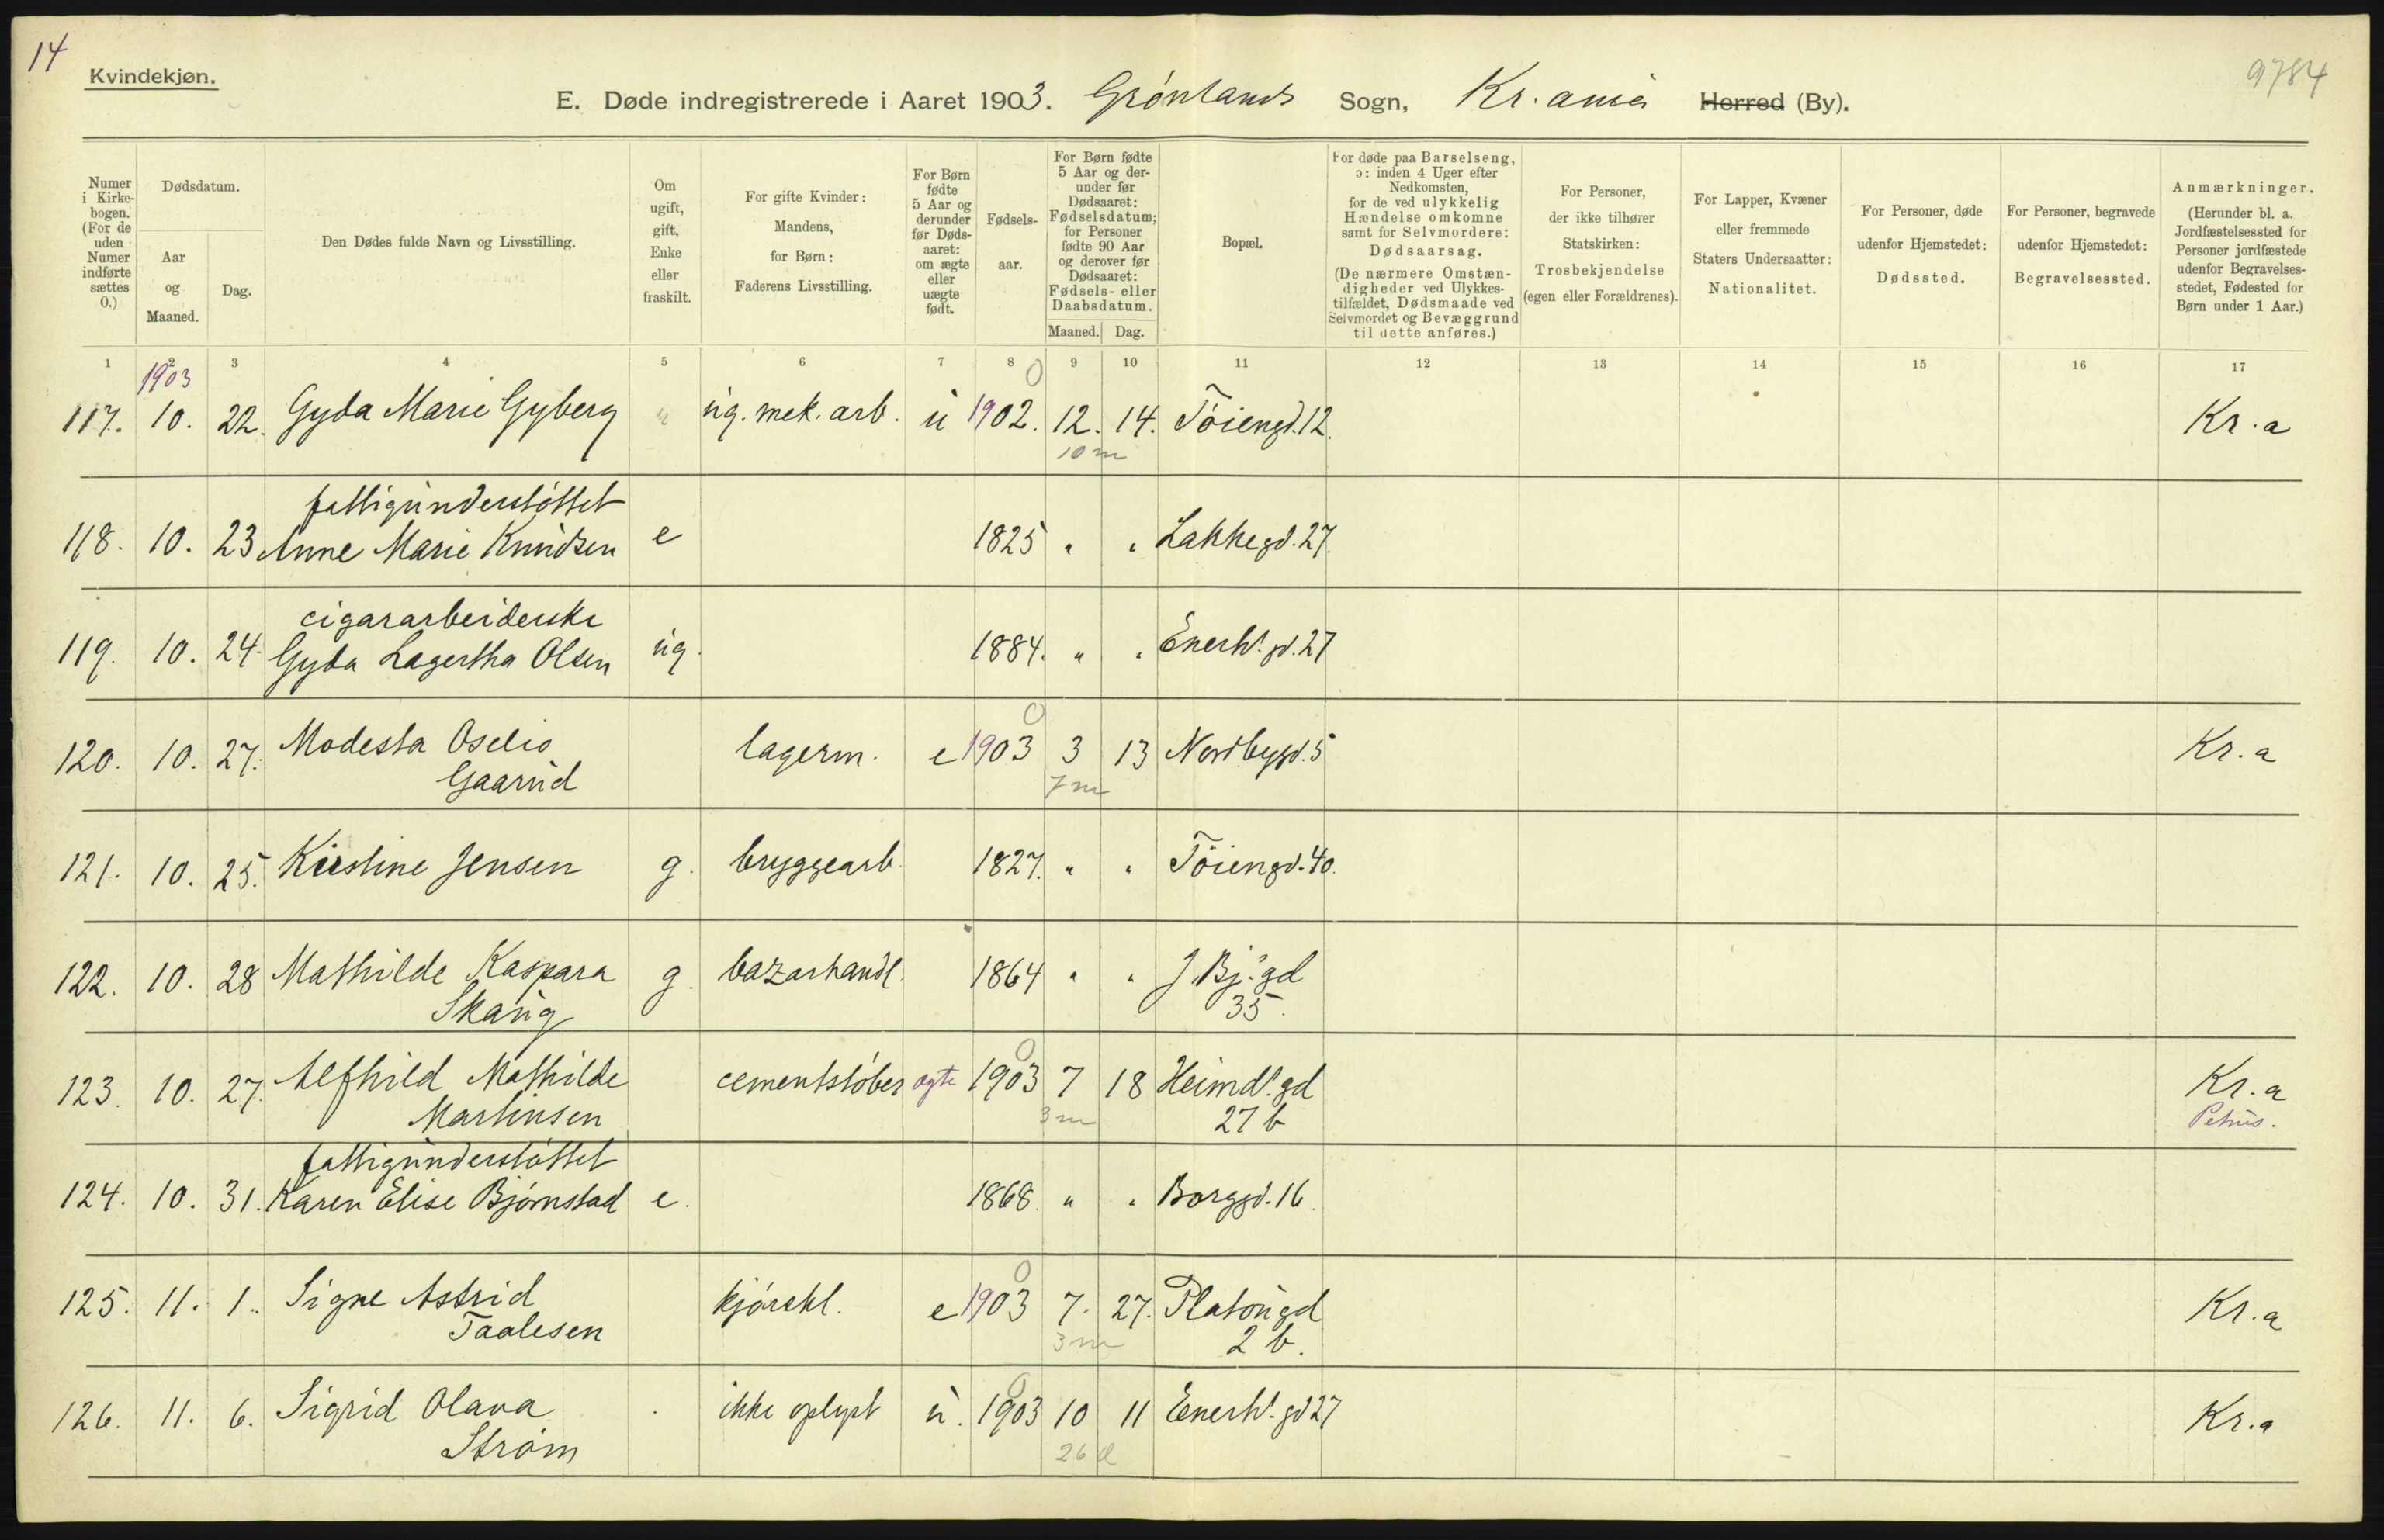 14
Kvindekjøn.
9784
E. Døde indregistrerede i Aaret 1903. Grønlands Sogn, Kr.ania Herred (By).
Numer i Kirke-bogen. (For de uden Numer indførte sættes 0.)
Dødsdatum.
Aar og Maaned.
Dag.
Den Dødes fulde Navn og Livsstilling.
Om ugift, gift, Enke eller fraskilt.
For gifte Kvinder: Mandens, for Børn: Faderens Livsstilling.
For Børn fødte 5 Aar og derunder før Døds-aaret: om ægte eller uægte født.
Fødsels-aar.
For Børn fødte 5 Aar og der-under før Dødsaaret: Fødselsdatum; for Personer fødte 90 Aar og derover før Dødsaaret: Fødsels- eller Daabsdatum.
Maaned. Dag.
Bopæl.
For døde paa Barselseng, ɔ: inden 4 Uger efter Nedkomsten, for de ved ulykkelig Hændelse omkomne samt for Selvmordere: Dødsaarsag. (De nærmere Omstæn-digheder ved Ulykkes-tilfældet, Dødsmaade ved Selvmordet og Bevæggrund til dette anføres.)
For Personer, der ikke tilhører Statskirken: Trosbekjendelse (egen eller Forældrenes).
For Lapper, Kvæner eller fremmede Staters Undersaatter: Nationalitet.
For Personer, døde udenfor Hjemstedet: Dødssted.
For Personer, begravede udenfor Hjemstedet: Begravelsessted.
Anmærkninger. (Herunder bl. a. Jordfæstelsessted for Personer jordfæstede udenfor Begravelses-stedet, Fødested for Børn under 1 Aar.)
1 2 3 4 5 6 7 8 9 10 11 12 13 14 15 16 17
1903 0
117. 10. 22. Gyda Marie Gyberg " ug. mek. arb. u 1902. 12. 14. Tøiengd. 12. Kr.a
10 m
fattigunderstøttet
118. 10. 23 Anne Marie Knudsen e 1825 " " Lakkegd. 27.
cigararbeiderske
119. 10. 24. Gyda Lagertha Olsen ug. 1884. " " Enerh. gd. 27
0
120. 10. 27. Modesta Oselio lagerm. e 1903 3 13 Nordbygd. 5 Kr.a
Gaarud 7 m
121. 10. 25. Kirstine Jensen g. bryggearb. 1827. " " Tøiengd. 40.
122. 10. 28 Mathilde Kaspara g. bazarhandl. 1864 " " J. Bj. gd
Skaug 35.
0
123. 10. 27. Alfhild Mathilde cementstøber ægte 1903 7 18 Heimd. gd Kr.a
Martinsen 3 m 27 b Petrus.
fattigunderstøttet
124. 10. 31. Karen Elise Bjørnstad e. 1868. " " Borggd. 16.
0
125. 11. 1. Signe Astrid kjørekl. e 1903 7. 27. Platougd Kr.a
Taalesen 3 m 2 b.
0
126. 11. 6. Sigrid Olava ikke oplyst u. 1903 10 11 Enerh. gd 27 Kr.a
Strøm 26 d